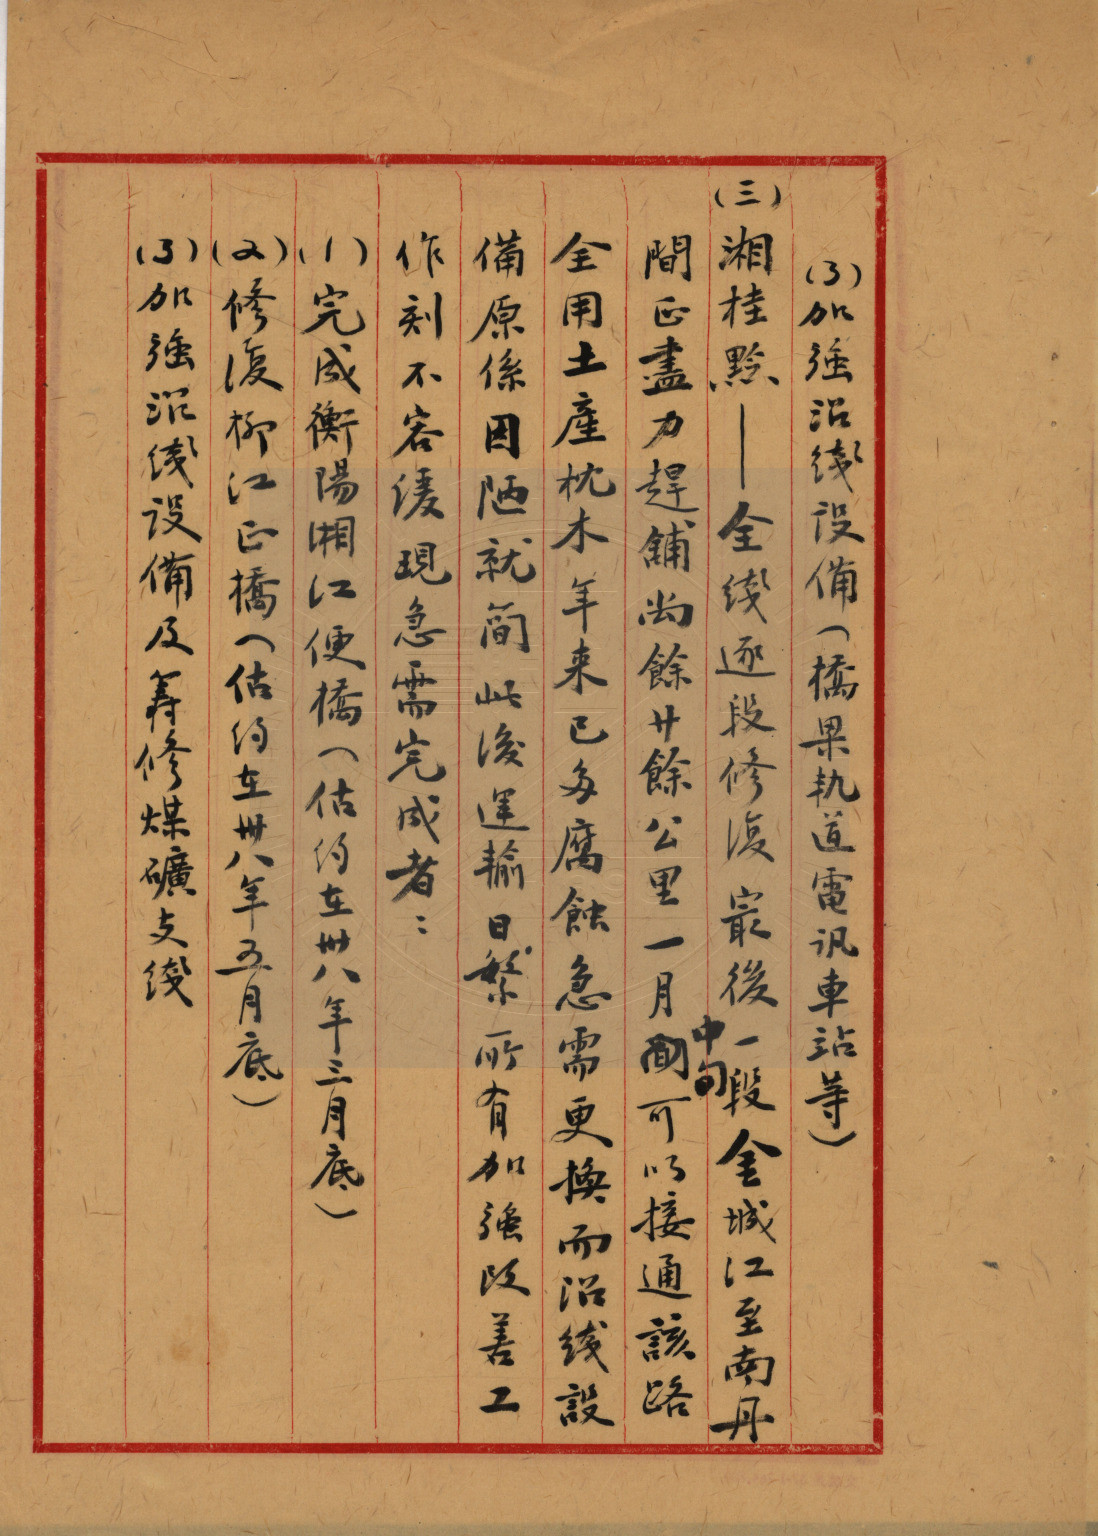 (3)加強沿綫設備(橋梁軌道電訊車站等)
(三)湘桂黔——全綫逐段修復最後一段金城江至南丹
間正盡力趕鋪尚餘廿餘公里一月中旬可以接通該路
全用土產枕木年来已多腐蝕急需更換而沿綫設
備原係因陋就簡此後運輸日繁所有加強改善工
作刻不容缓現急需完成者:
(1)完成衡陽湘江便橋(估約在卅八年三月底)
(2)修復柳江正橋(估約在卅八年五月底)
(3)加強沿綫設備及籌修煤礦支綫